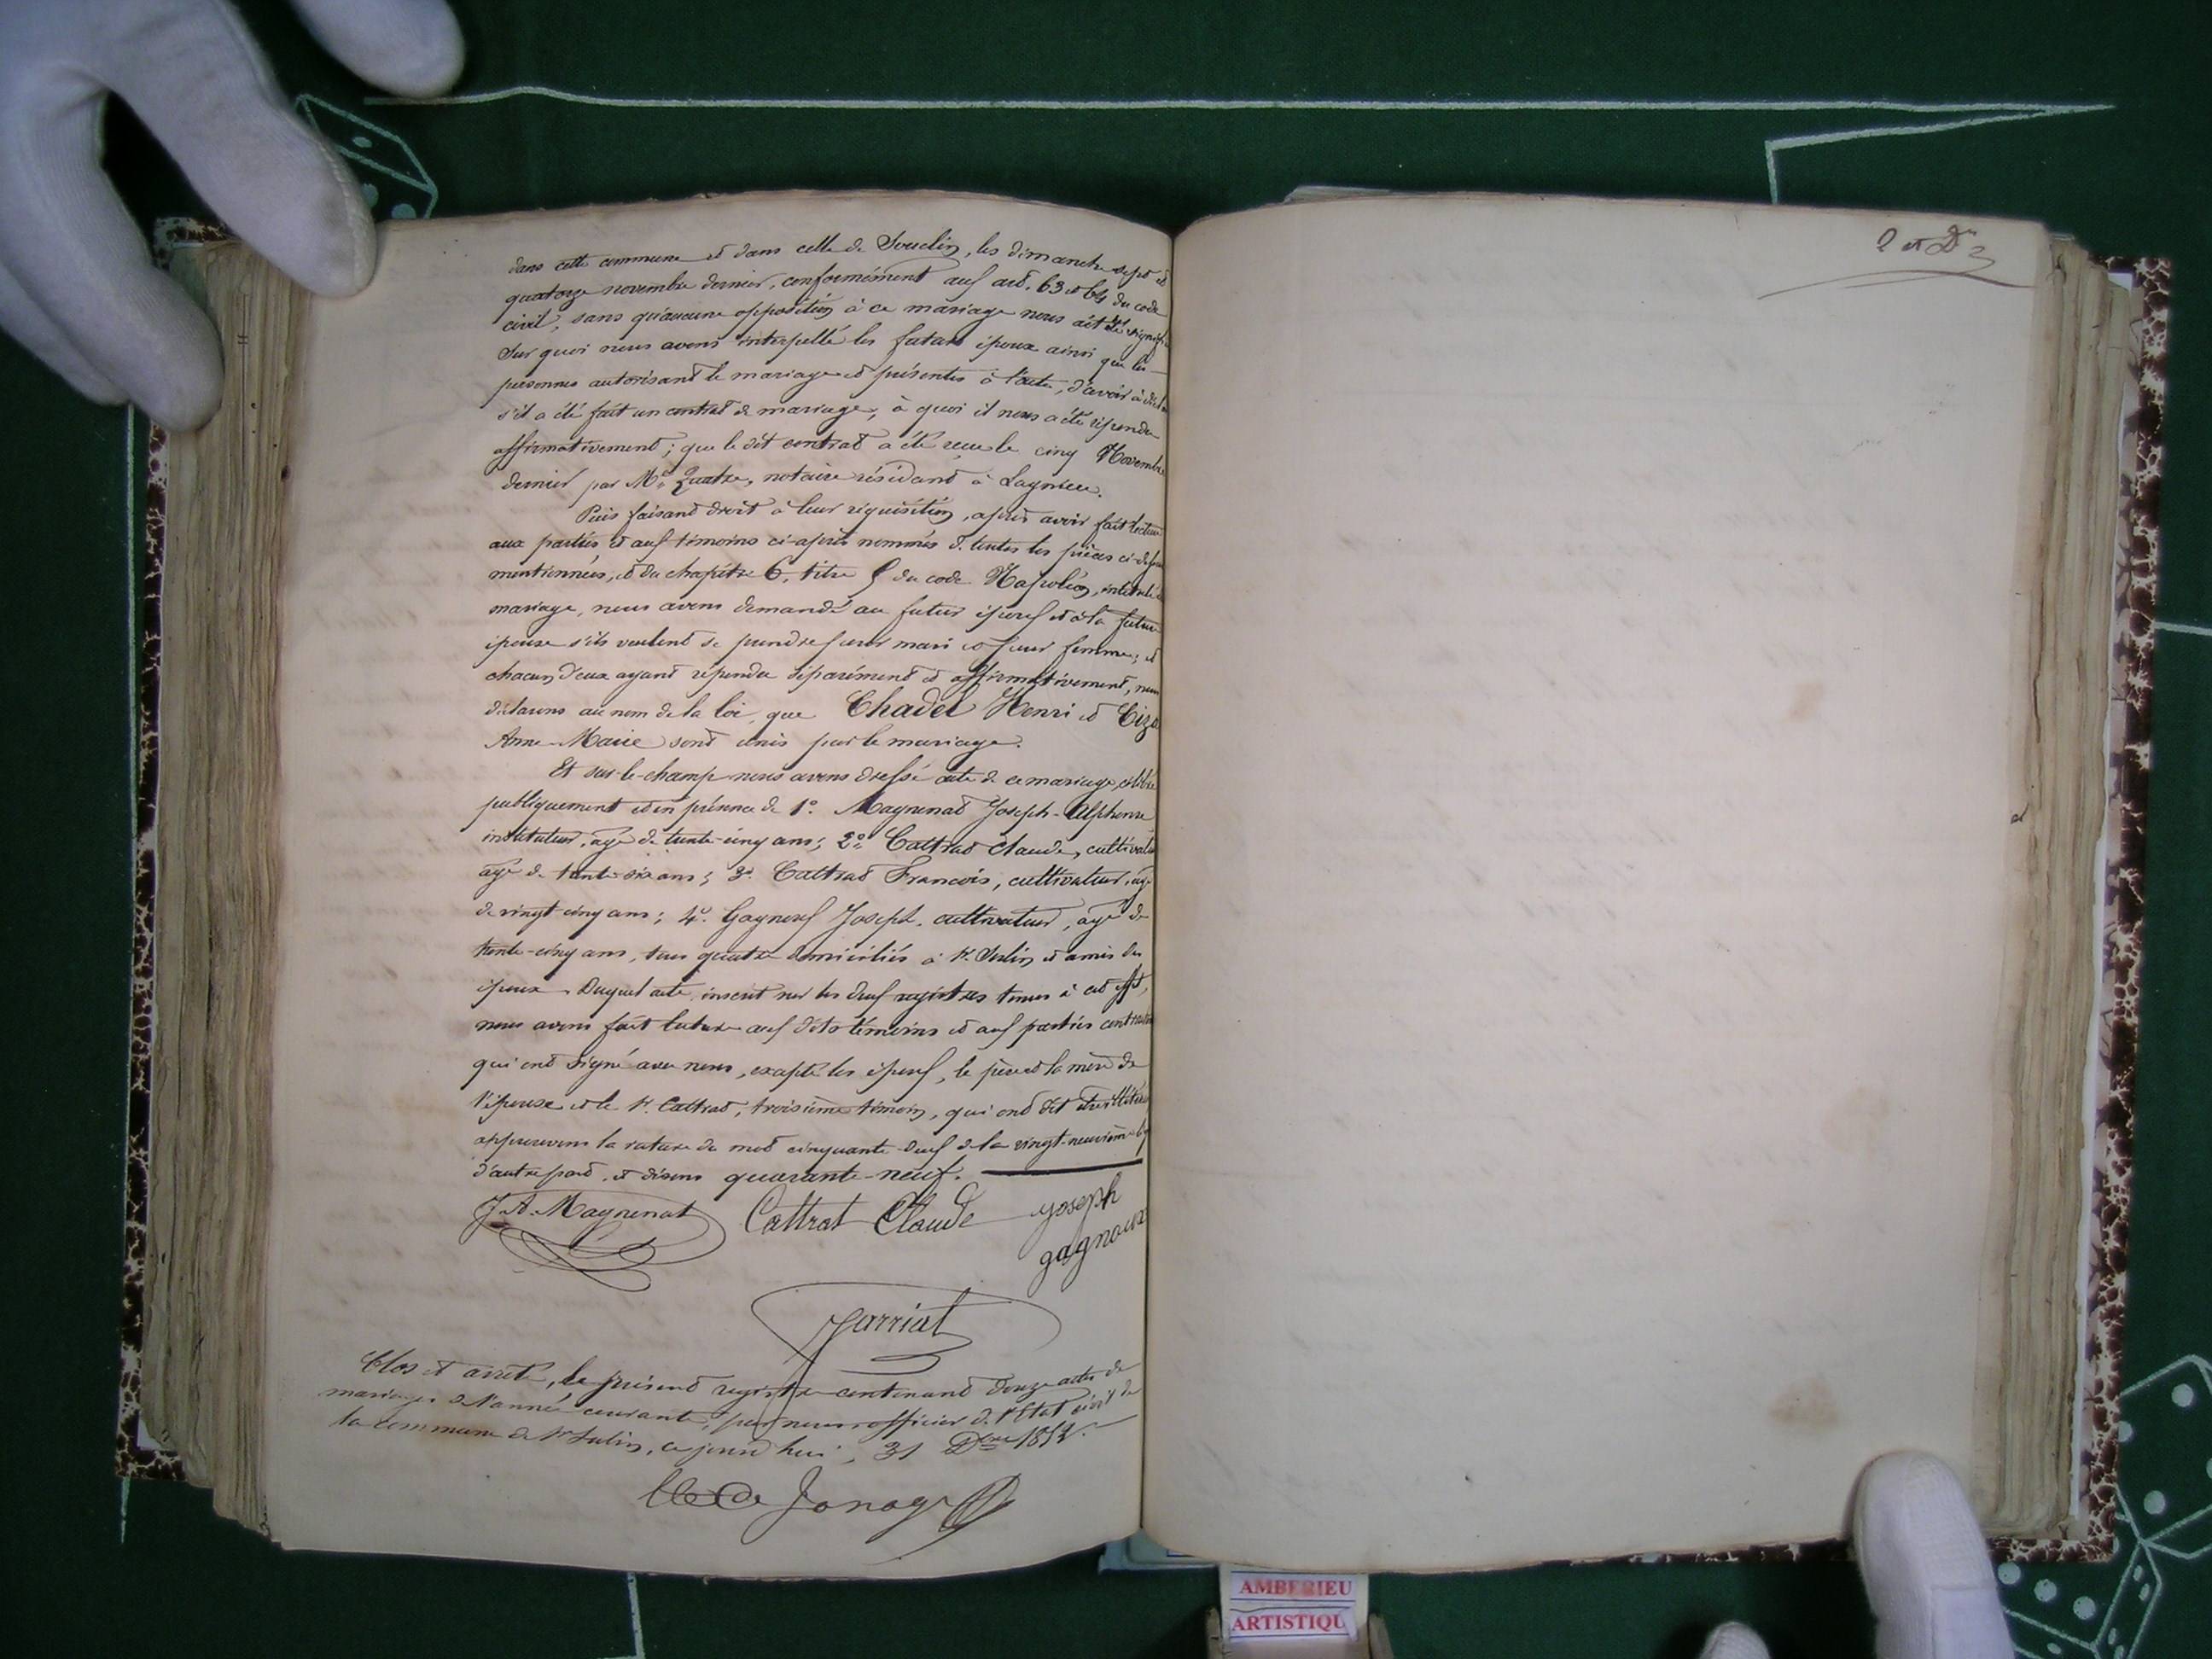 dans cette commune et dans celle de Souclin, les dimanche sept et
quatorze novembre dernier, conformément aux art. 63 et 64 du code
civil, sans qu'aucune opposition à ce mariage nous ait été signifiée
Sur quoi nous avons interpellé les futurs époux ainsi que les
personnes autorisant le mariage et présentes à l'acte, d'avoir à
s'il a été fait un contrat de mariage, à quoi il nous a été répondu
affirmativement; que le dit contrat a été reçu le cinq Novembre
dernier par Me Quatre, notaire résidant à Lagnieu.
Puis faisant droit à leur réquisition, après avoir fait lecture
aux parties et aux témoins ci-après nommés de toutes les pièces ci-dessus
mentionnées, et du chapitre 6, titre 5 du code Napoléon, intitulé
mariage, nous avons demandé au futur époux et à la future
épouse s'ils veulent se prendre pour mari et pour femme; et
chacun d'eux ayant répondu séparément et affirmativement, nous
déclarons au nom de la loi, que Chadel Henri et
Anne-Marie sont unis par le mariage.
Et sur-le-champ nous avons dressé acte de ce mariage, célébré
publiquement et en présence de 1o. Magnenat Joseph-Alphonse
instituteur, agé de trente-cinq ans; 2o. Cattrat Claude, cultivateur
agé de trente-six ans; 3o. Cattrat François, cultivateur, agé
de vingt-cinq ans; 4o. Gagneux Joseph, cultivateur, agé de
trente-cinq ans, tous quatre domiciliés à St. Sulin et amis des
époux. Duquel acte, inscrit sur les deux registres tenus à cet effet,
nous avons fait lecture aux dits témoins et aux parties contractantes
qui ont signé avec nous, excepté les époux, le père et la mère de
l'épouse et le Sr. Cattrat, troisième témoin, qui ont dit être illitérés
approuvons la rature du mot cinquante-deux de la vingt-neuvième
d'autre part, et disons quarante-neuf.
J. A. Magnenat Cattrat Claude joseph
gagnoux
Jarriat
Clos et arrêté, le présent registre contenant douze actes de
mariages de l'année courante, par nous officier de l'Etat civil de
la commune de St Sulin, ce jourd'hui, 31 Dbre 185
de Jonage
AMBERIEU
ARTISTIQU